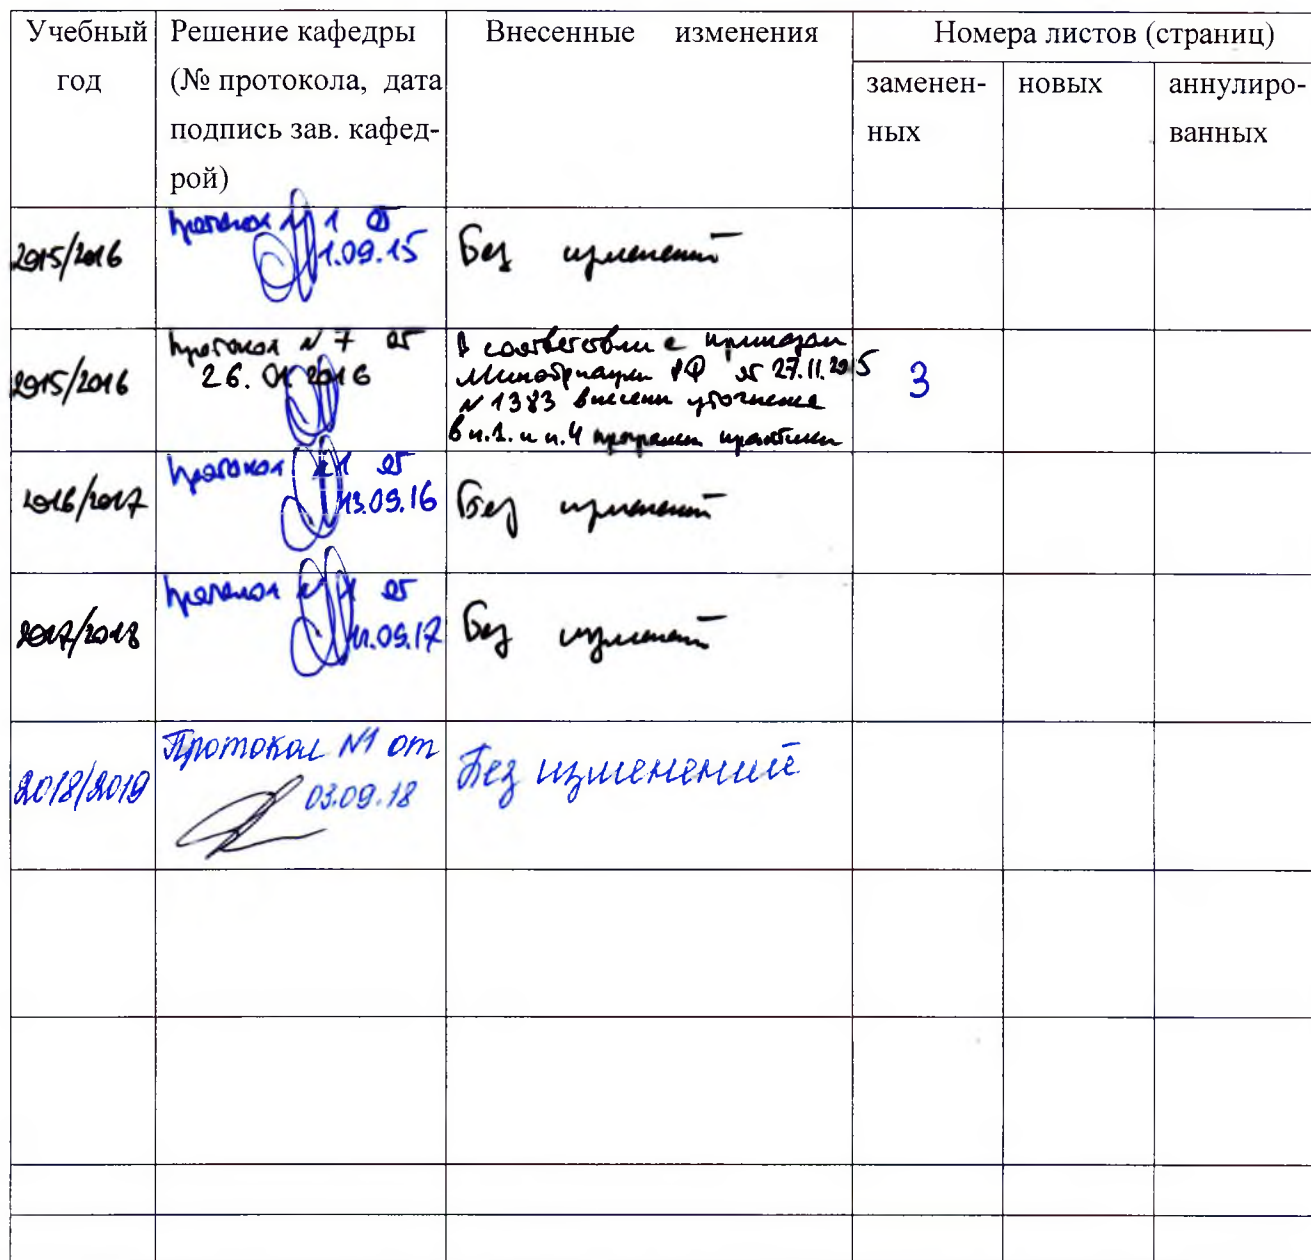 Учебный год
Решение кафедры
(№ протокола, дата
подпись зав. кафед-
рой)
Внесенные изменения
Номера листов (страниц)
заменен-
ных
новых
аннулиро-
ванных
2015/2016
Протокол № 1 от
1.09.15
Без изменений
2015/2016
Протокол № 7 от
26.01.2016
В соответствии с приказом
Минобрнауки РФ от 27.11.2015
№ 1383 внесены уточнения
в п.1. и п.4 программы практики
3
2016/2017
Протокол № 1 от
13.09.16
Без изменений
2017/2018
Протокол № 1 от
11.09.17
Без изменений
2018/2019
Протокол №1 от
03.09.18
Без изменений